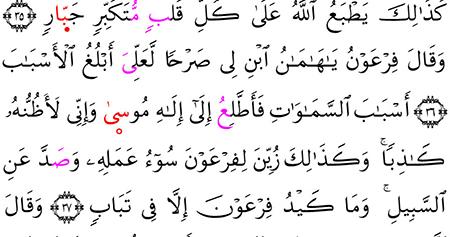 كَذَٰلِكَ يَطْبَعُ ٱللَّهُ عَلَىٰ كُلِّ قَلْبِ مُتَكَبِّرٍ جَبَّارٍ ﴿٣٥﴾
وَقَالَ فِرْعَوْنُ يَٰهَٰمَٰنُ ٱبْنِ لِى صَرْحًا لَّعَلِّىٓ أَبْلُغُ ٱلْأَسْبَٰبَ
﴿٣٦﴾ أَسْبَٰبَ ٱلسَّمَٰوَٰتِ فَأَطَّلِعُ إِلَىٰٓ إِلَٰهِ مُوسَىٰ وَإِنِّى لَأَظُنُّهُۥ
كَٰذِبًا ۚ وَكَذَٰلِكَ زُيِّنَ لِفِرْعَوْنَ سُوٓءُ عَمَلِهِۦ وَصَدَّ عَنِ
ٱلسَّبِيلِ ۚ وَمَا كَيْدُ فِرْعَوْنَ إِلَّا فِى تَبَابٍ ﴿٣٧﴾ وَقَالَ